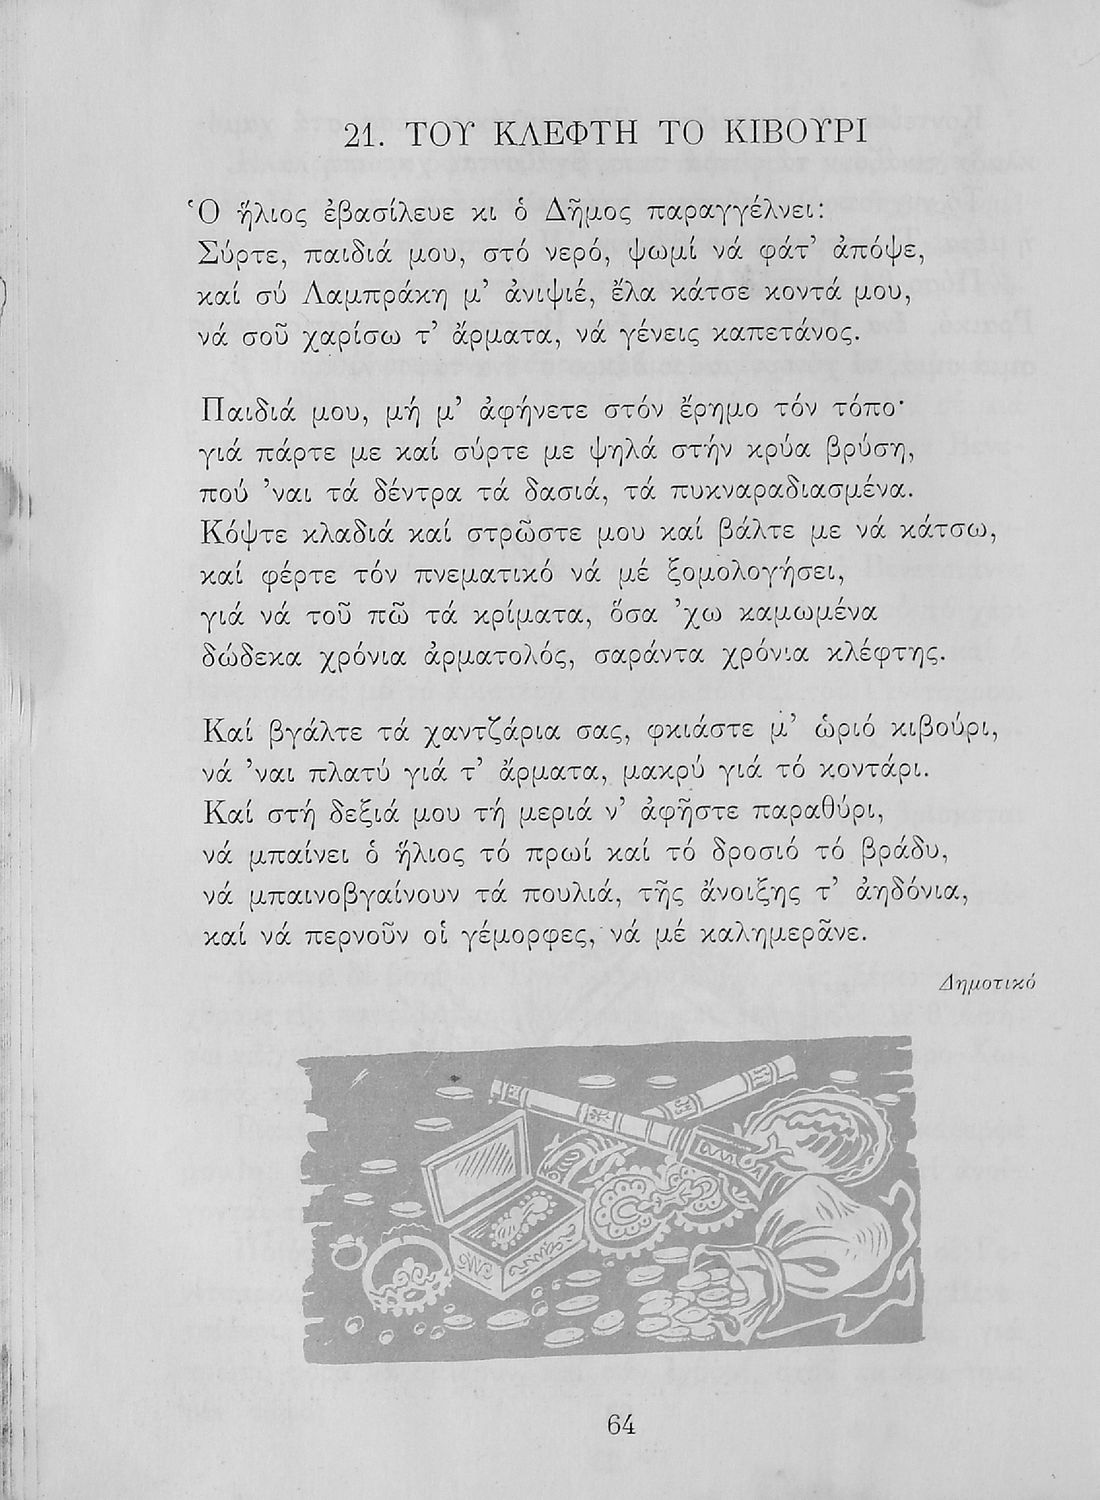 21. ΤΟΥ ΚΛΕΦΤΗ ΤΟ ΚΙΒΟΥΡΙ
Ὁ ἥλιος ἐβασίλευε κι ὁ Δῆμος παραγγέλνει:
Σύρτε, παιδιά μου, στό νερό, ψωμί νά φάτ’ ἀπόψε,
καί σύ Λαμπράκη μ’ ἀνιψιέ, ἔλα κάτσε κοντά μου,
νά σοῦ χαρίσω τ’ ἄρματα, νά γένεις καπετάνος.
Παιδιά μου, μή μ’ ἀφήνετε στόν ἔρημο τόν τόπο·
γιά πάρτε με καί σύρτε με ψηλά στήν κρύα βρύση,
πού ’ναι τά δέντρα τά δασιά, τά πυκναραδιασμένα.
Κόψτε κλαδιά καί στρῶστε μου καί βάλτε με νά κάτσω,
καί φέρτε τόν πνεματικό νά μέ ξομολογήσει,
γιά νά τοῦ πῶ τά κρίματα, ὅσα ’χω καμωμένα
δώδεκα χρόνια ἀρματολός, σαράντα χρόνια κλέφτης.
Καί βγάλτε τά χαντζάρια σας, φκιάστε μ’ ὡριό κιβούρι,
νά ’ναι πλατύ γιά τ’ ἄρματα, μακρύ γιά τό κοντάρι.
Καί στή δεξιά μου τή μεριά ν’ ἀφῆστε παραθύρι,
νά μπαίνει ὁ ἥλιος τό πρωί καί τό δροσιό τό βράδυ,
νά μπαινοβγαίνουν τά πουλιά, τῆς ἄνοιξης τ’ ἀηδόνια,
καί νά περνοῦν οἱ γέμορφες, νά μέ καλημερᾶνε.
Δημοτικό
64